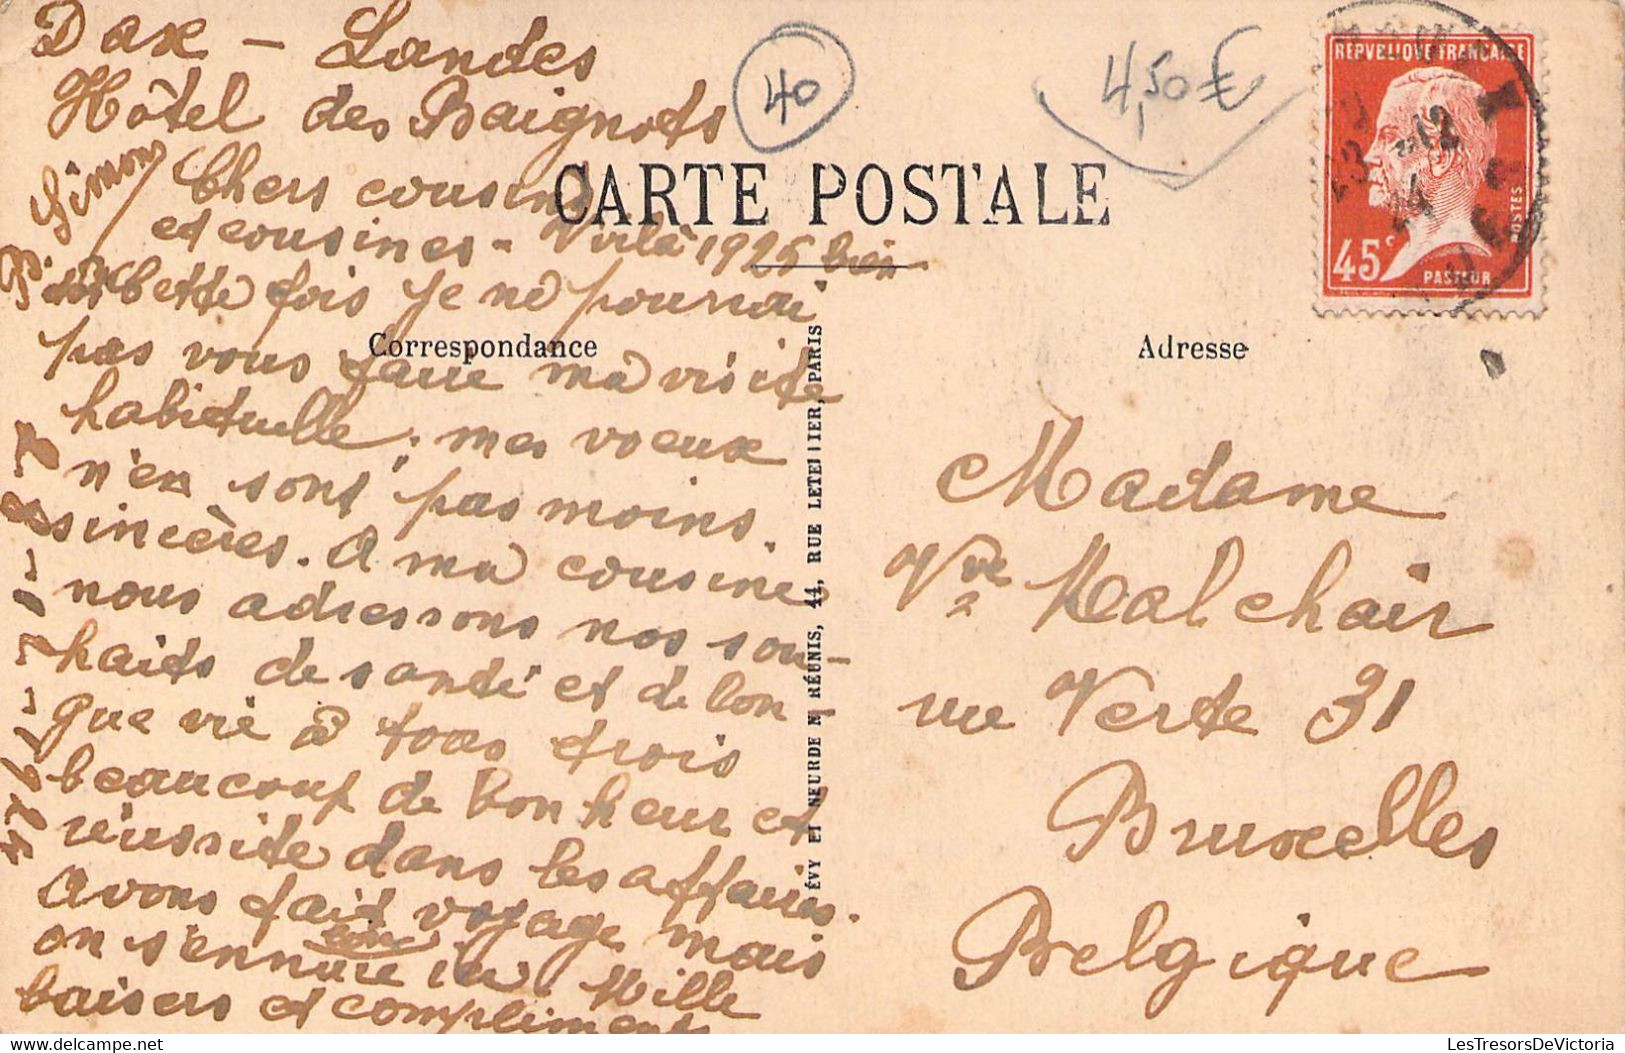 Dax - Landes
Hôtel des Baignots
40
4,50€
Chers cousins
et cousines - Voilà 1925 bien
Cette fois je ne pourrai
pas vous faire ma visite
habituelle; mes voeux
n'en sont pas moins
sincères. A ma cousine
nous adressons nos sou-
haits de santé et de lon
gue vie à tous trois
beaucoup de bonheur et
réussite dans les affaires.
Avons fait bon voyage mais
on s'ennuie ici Mille
baisers et compliments
Simon
CARTE POSTALE
Correspondance
Adresse
LÉVY ET NEURDEIN RÉUNIS, 44, RUE LETELLIER, PARIS
REPVBLIQVE FRANCAISE
POSTES
45c
PASTEUR
Madame
Vve Malchair
rue Verte 31
Bruxelles
Belgique
LesTresorsDeVictoria